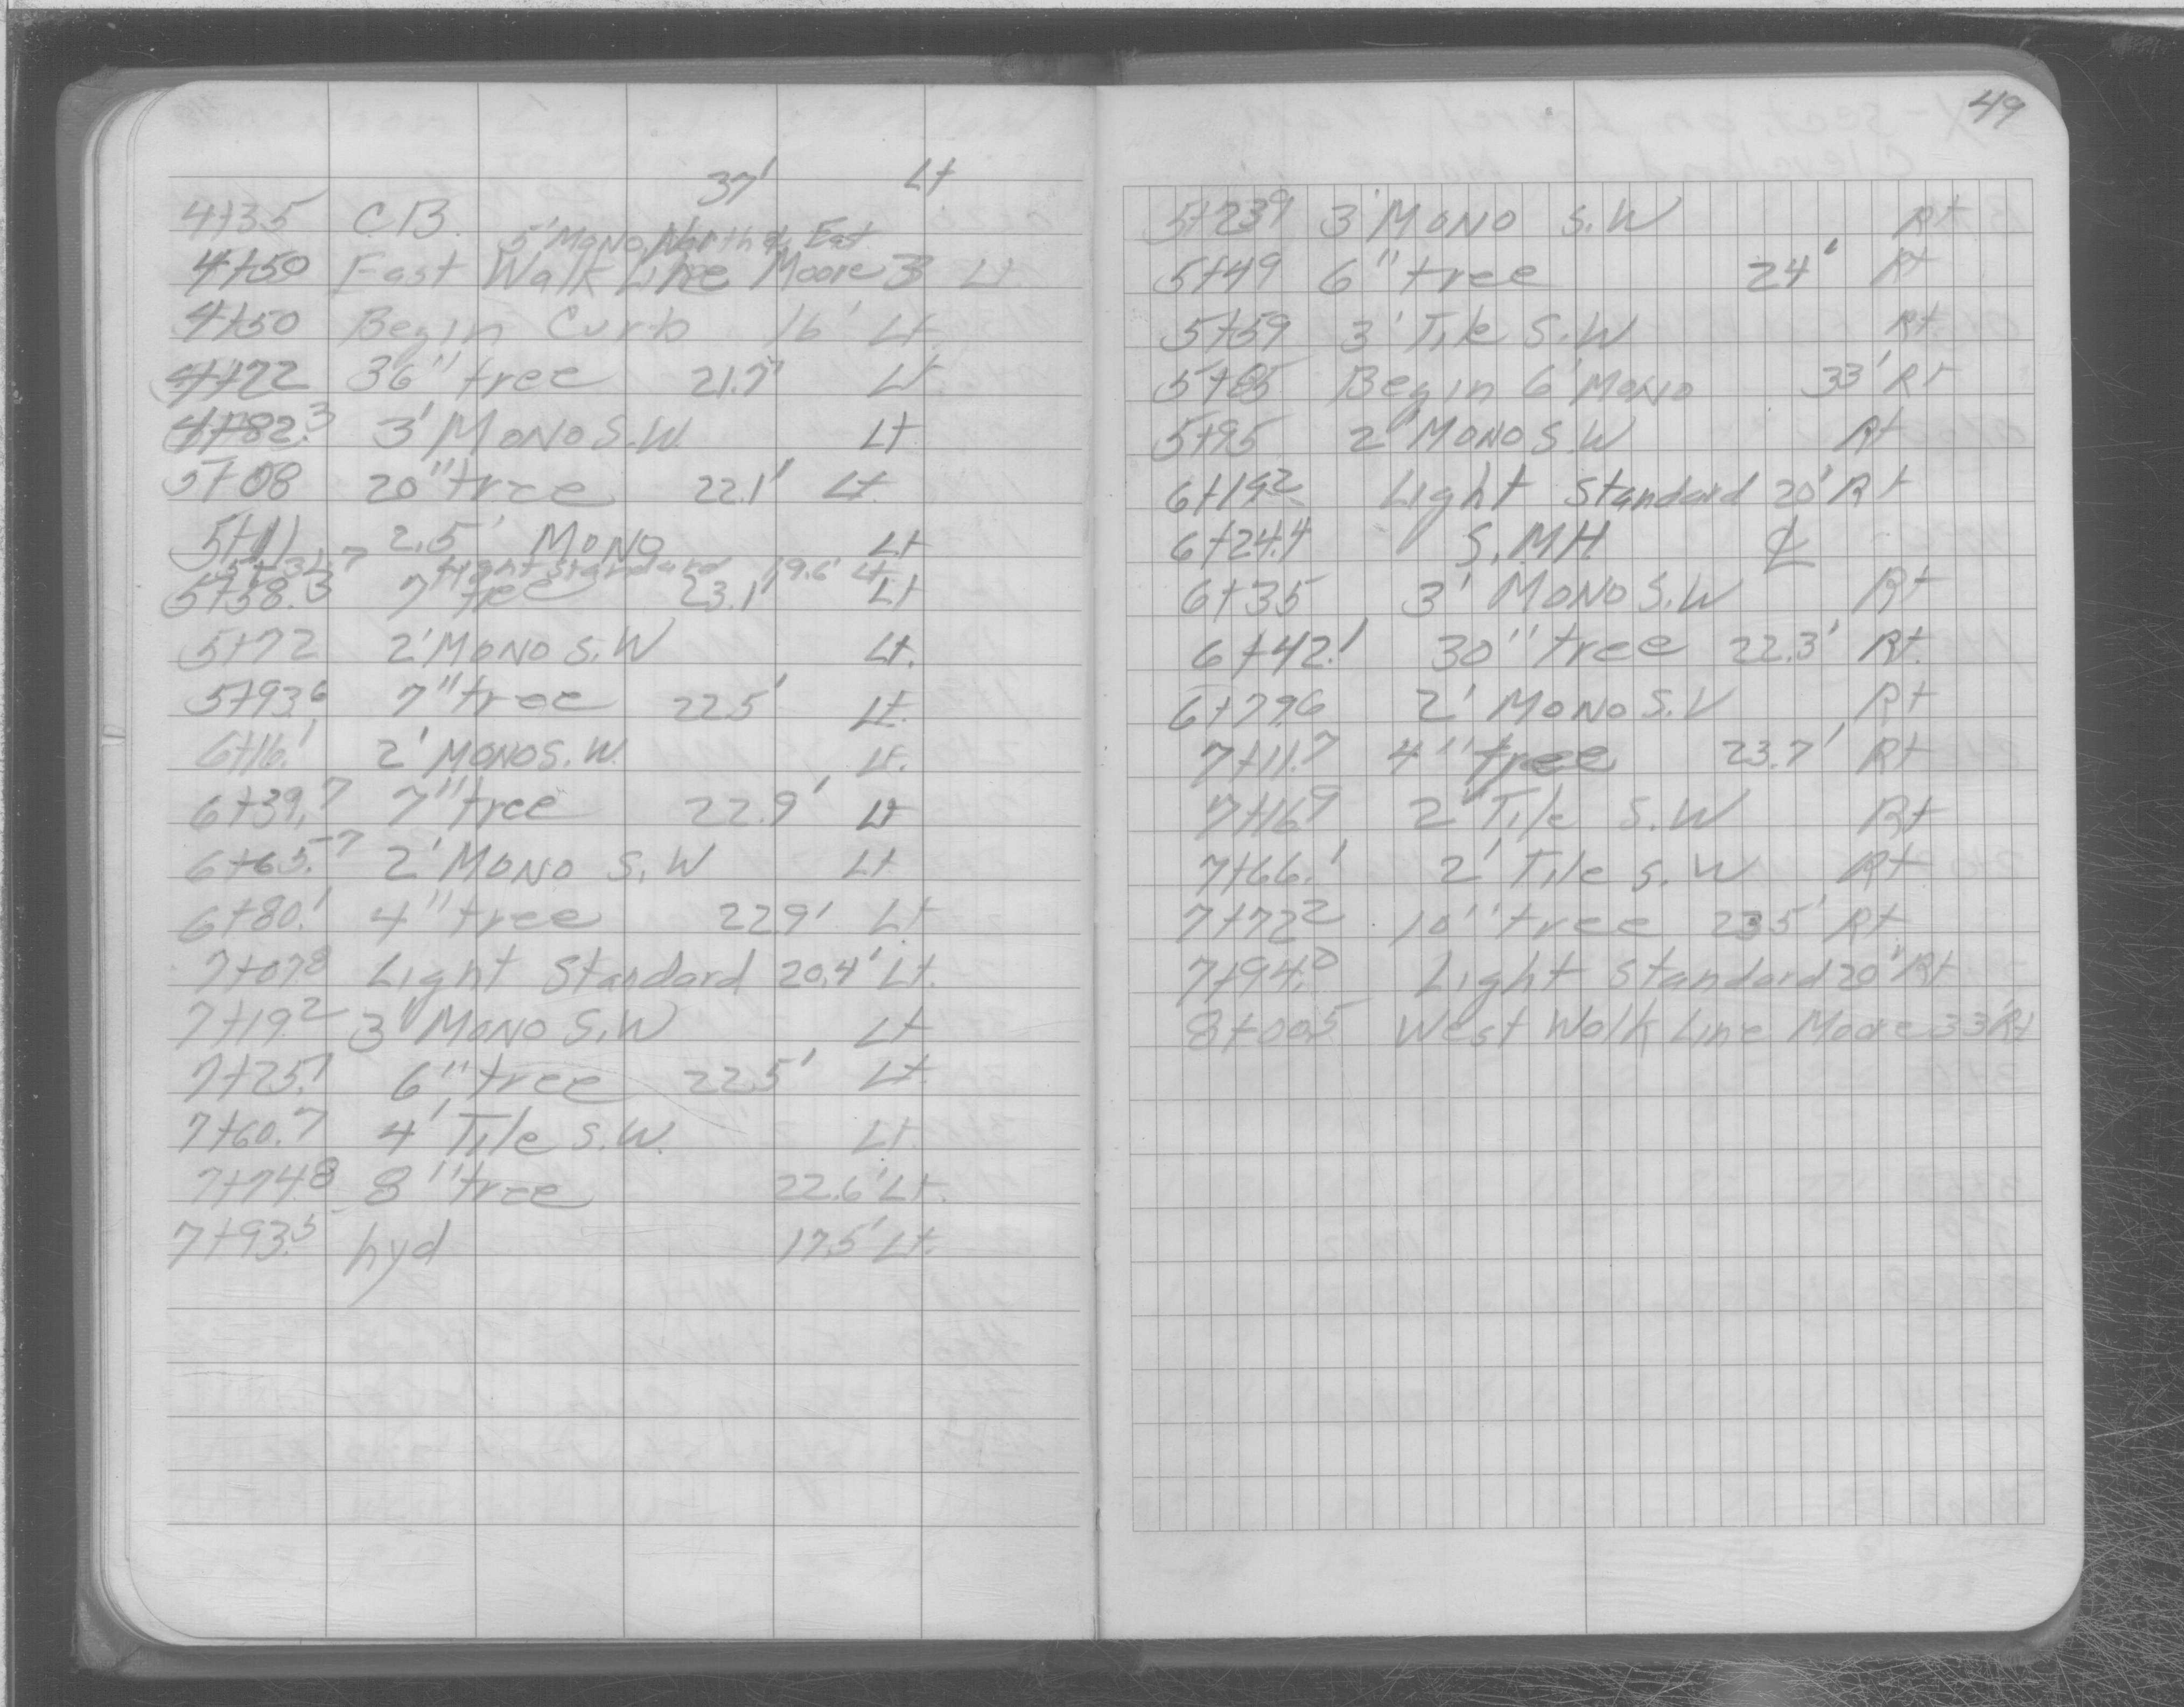 37' Lt
4+35 C.B.
5' Mono. North & East
4+50 East Walk Line Moore 3 Lt
4+50 Begin Curb 16' Lt.
4+72 36" tree 21.7' Lt
4+82.3 3' MONO S.W. Lt
5+08 20" tree 22.1' Lt.
5+11 2.5' MONO Lt
Light Standard 19.6' Lt
5+58.3 7" tree 23.1' Lt
5+72 2' MONO S.W Lt.
5+93.6 7" tree 22.5' Lt.
6+16.1 2' MONO S.W. Lt.
6+39.7 7" tree 22.9' Lt
6+65.7 2' MONO S.W Lt
6+80.1 4" tree 22.9' Lt
7+07.8 Light Standard 20.4' Lt.
7+19.2 3' MONO S.W Lt
7+25.1 6" tree 22.5' Lt.
7+60.7 4' Tile S.W. Lt.
7+74.8 8" tree 22.6' Lt.
7+93.5 hyd 17.5' Lt.
49
5+23.9 3' MONO S.W Rt
5+49 6" tree 24' Rt
5+59 3' Tile S.W Rt
5+85 Begin 6' MONO 33' Rt
5+95 2' MONO S.W Rt
6+19.2 Light Standard 20' Rt
6+24.4 S.MH ℄
6+35 3' MONO S.W Rt
6+42.1 30" tree 22.3' Rt.
6+79.6 2' MONO S.V Rt
7+11.7 4" tree 23.7' Rt
7+16.9 2' Tile S.W Rt
7+66.1 2' Tile S.W Rt
7+72.2 10" tree 23.5' Rt
7+94.8 Light Standard 20' Rt
8+00.5 West Walk Line Moore 33' Rt